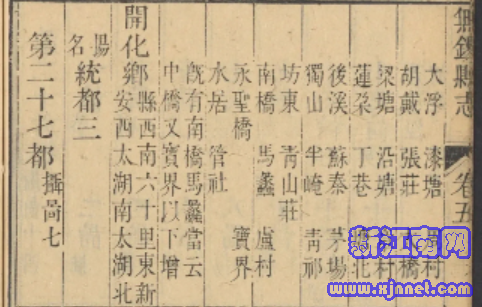 無錫縣志 卷五
大浮 漆塘 村
胡戴 張莊 橋
梁塘 沿塘 村
蓮朶 丁巷 北
後溪 蘇泰 茅場
獨山 半崦 青祁
坊東 青山莊
南橋 馬蠡 盧村
永聖橋 寶界
水居 管社
旣有南橋馬蠡當云
中橋又寶界以下增
開化鄉 縣西南六十里東新
安西太湖南太湖北
揚名 統都三
第二十七都 攝啚七
新江南网